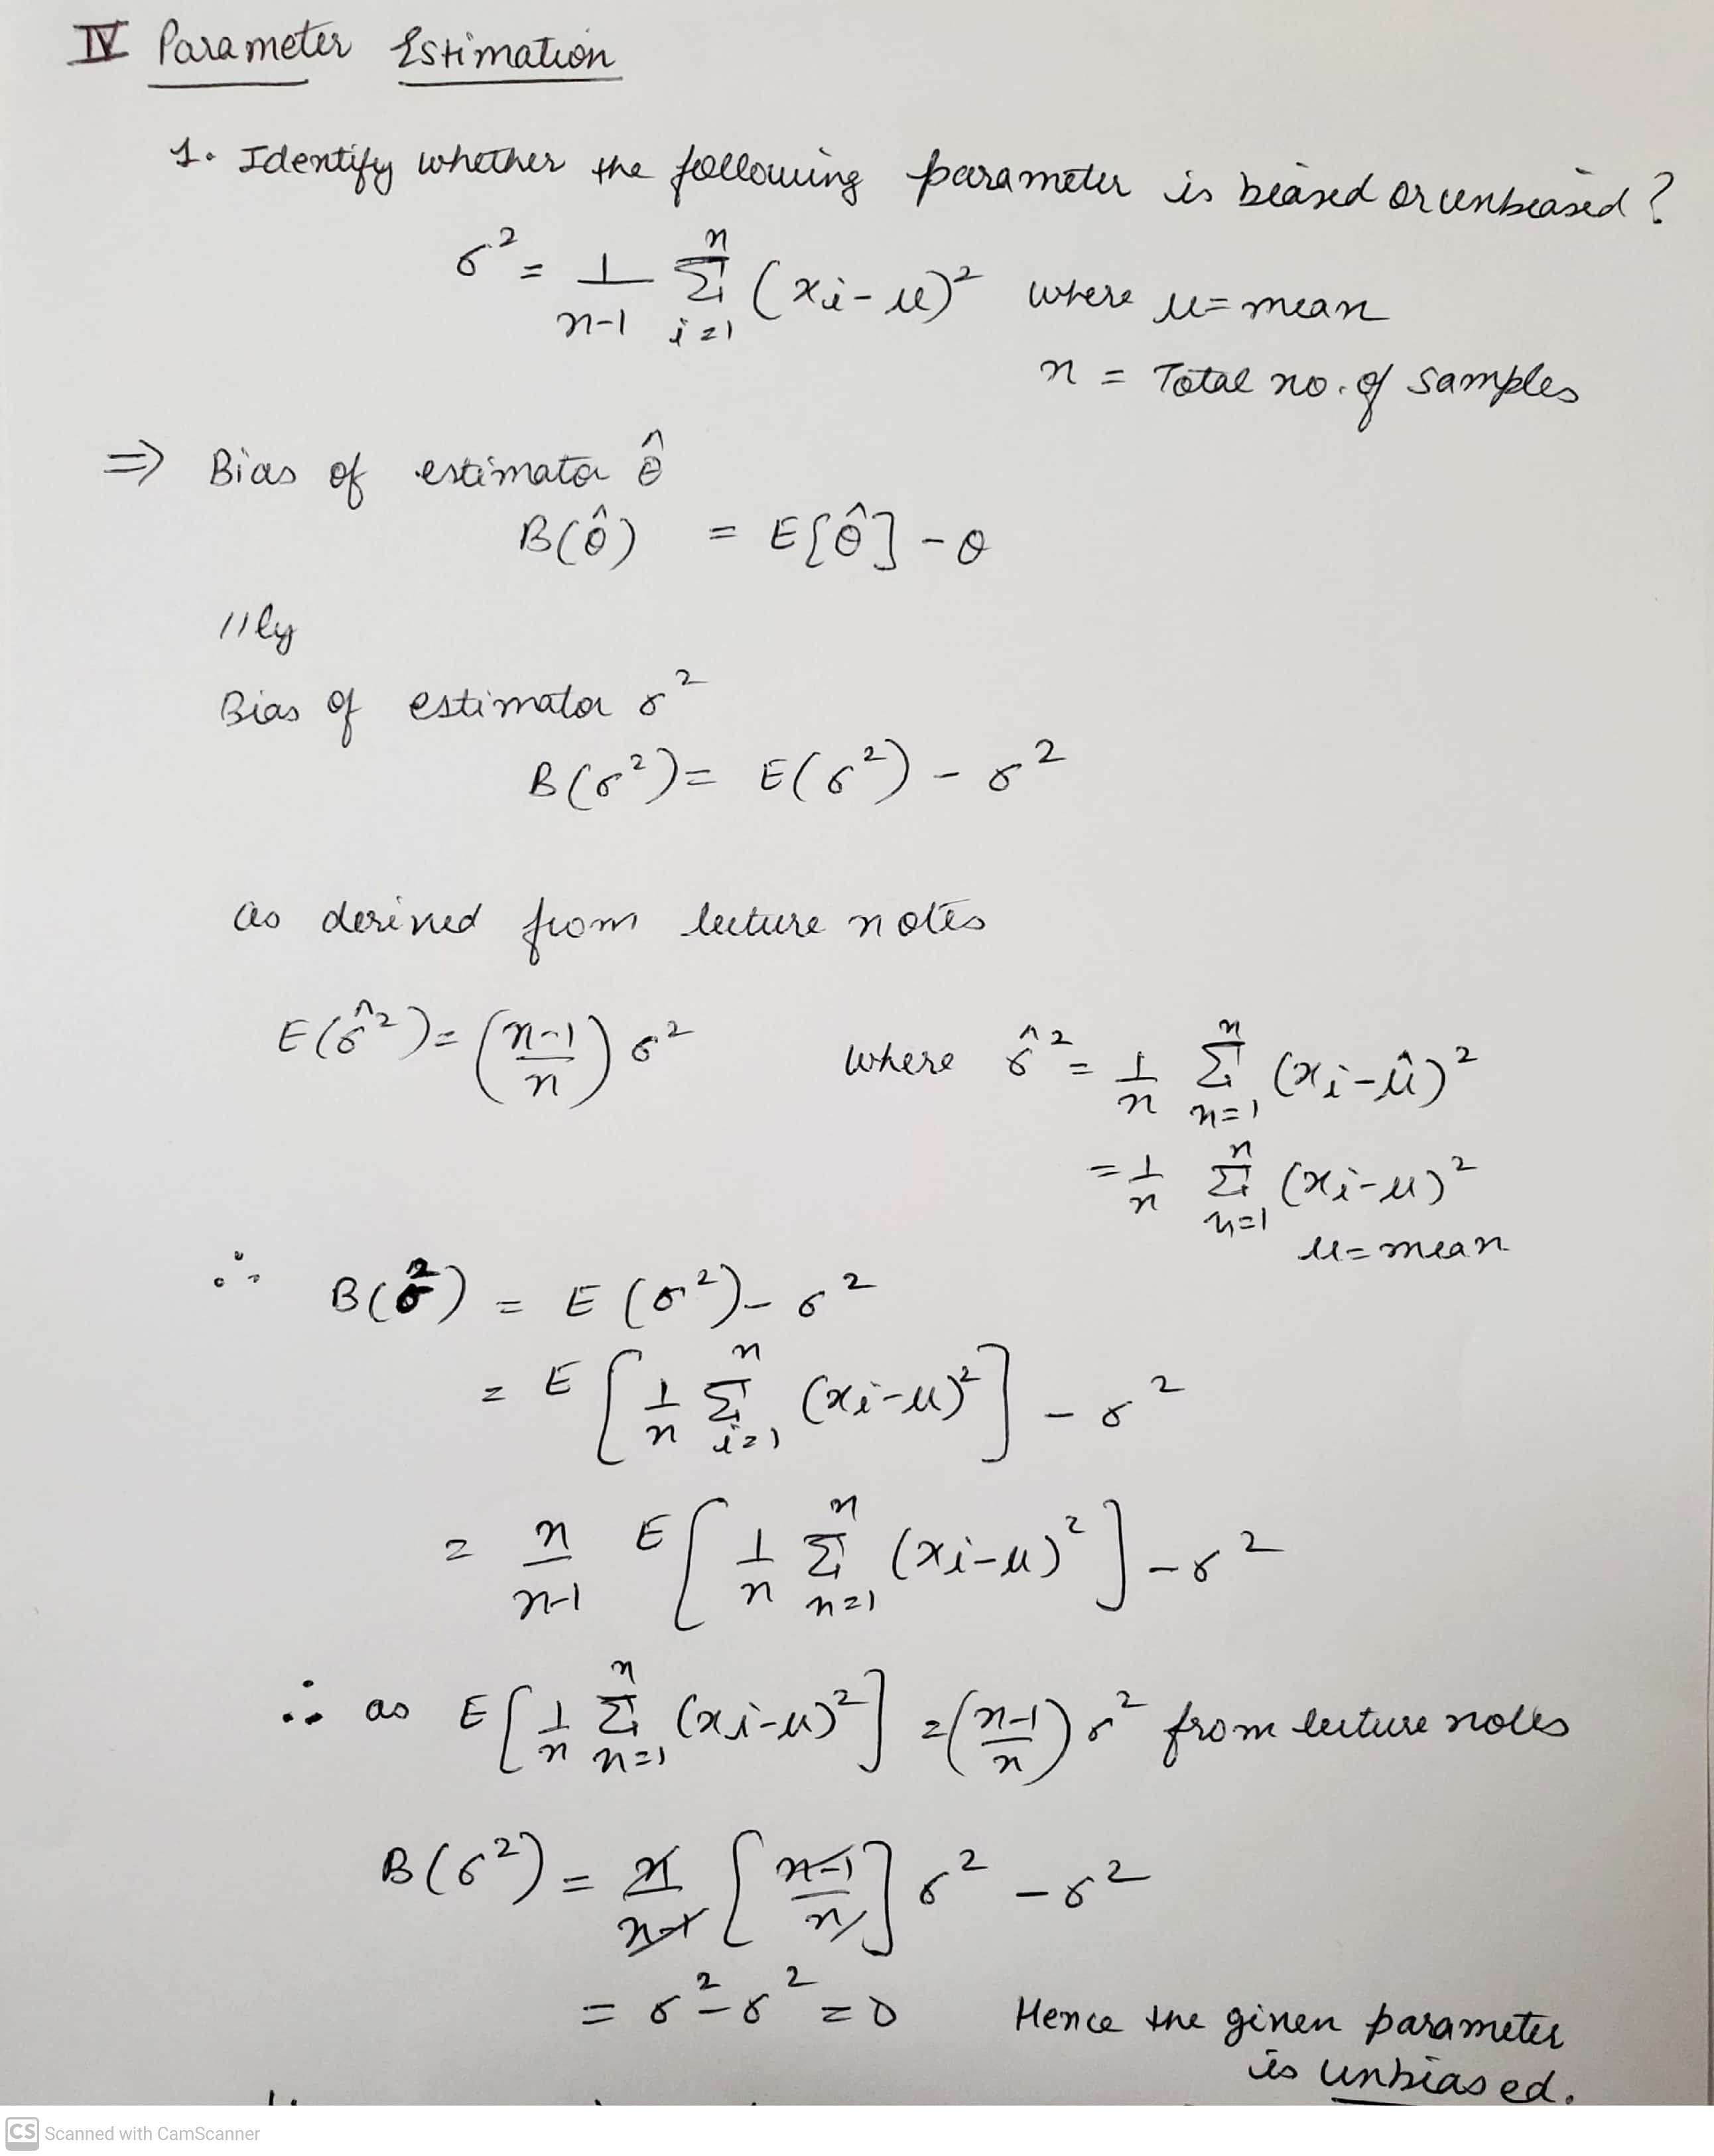 IV Parameter Estimation
1. Identify whether the following parameter is biased or unbiased?
σ² = 1/(n-1) Σ_{i=1}^{n} (xi-μ)² where μ = mean
n = Total no. of samples
⇒ Bias of estimator θ̂
B(θ̂) = E[θ̂] - θ
//ly
Bias of estimator σ²
B(σ²) = E(σ²) - σ²
as derived from lecture notes
E(σ̂²) = ((n-1)/n) σ² where σ̂² = 1/n Σ_{n=1}^{n} (xi-μ̂)²
= 1/n Σ_{n=1}^{n} (xi-μ)²
μ = mean
∴ B(σ²) = E(σ²) - σ²
= E[1/n Σ_{i=1}^{n} (xi-μ)²] - σ²
= n/(n-1) E[1/n Σ_{n=1}^{n} (xi-μ)²] - σ²
∴ as E[1/n Σ_{n=1}^{n} (xi-μ)²] = ((n-1)/n) σ² from lecture notes
B(σ²) = n/(n-1) [(n-1)/n] σ² - σ²
= σ² - σ² = 0 Hence the given parameter
is unbiased.
CS Scanned with CamScanner